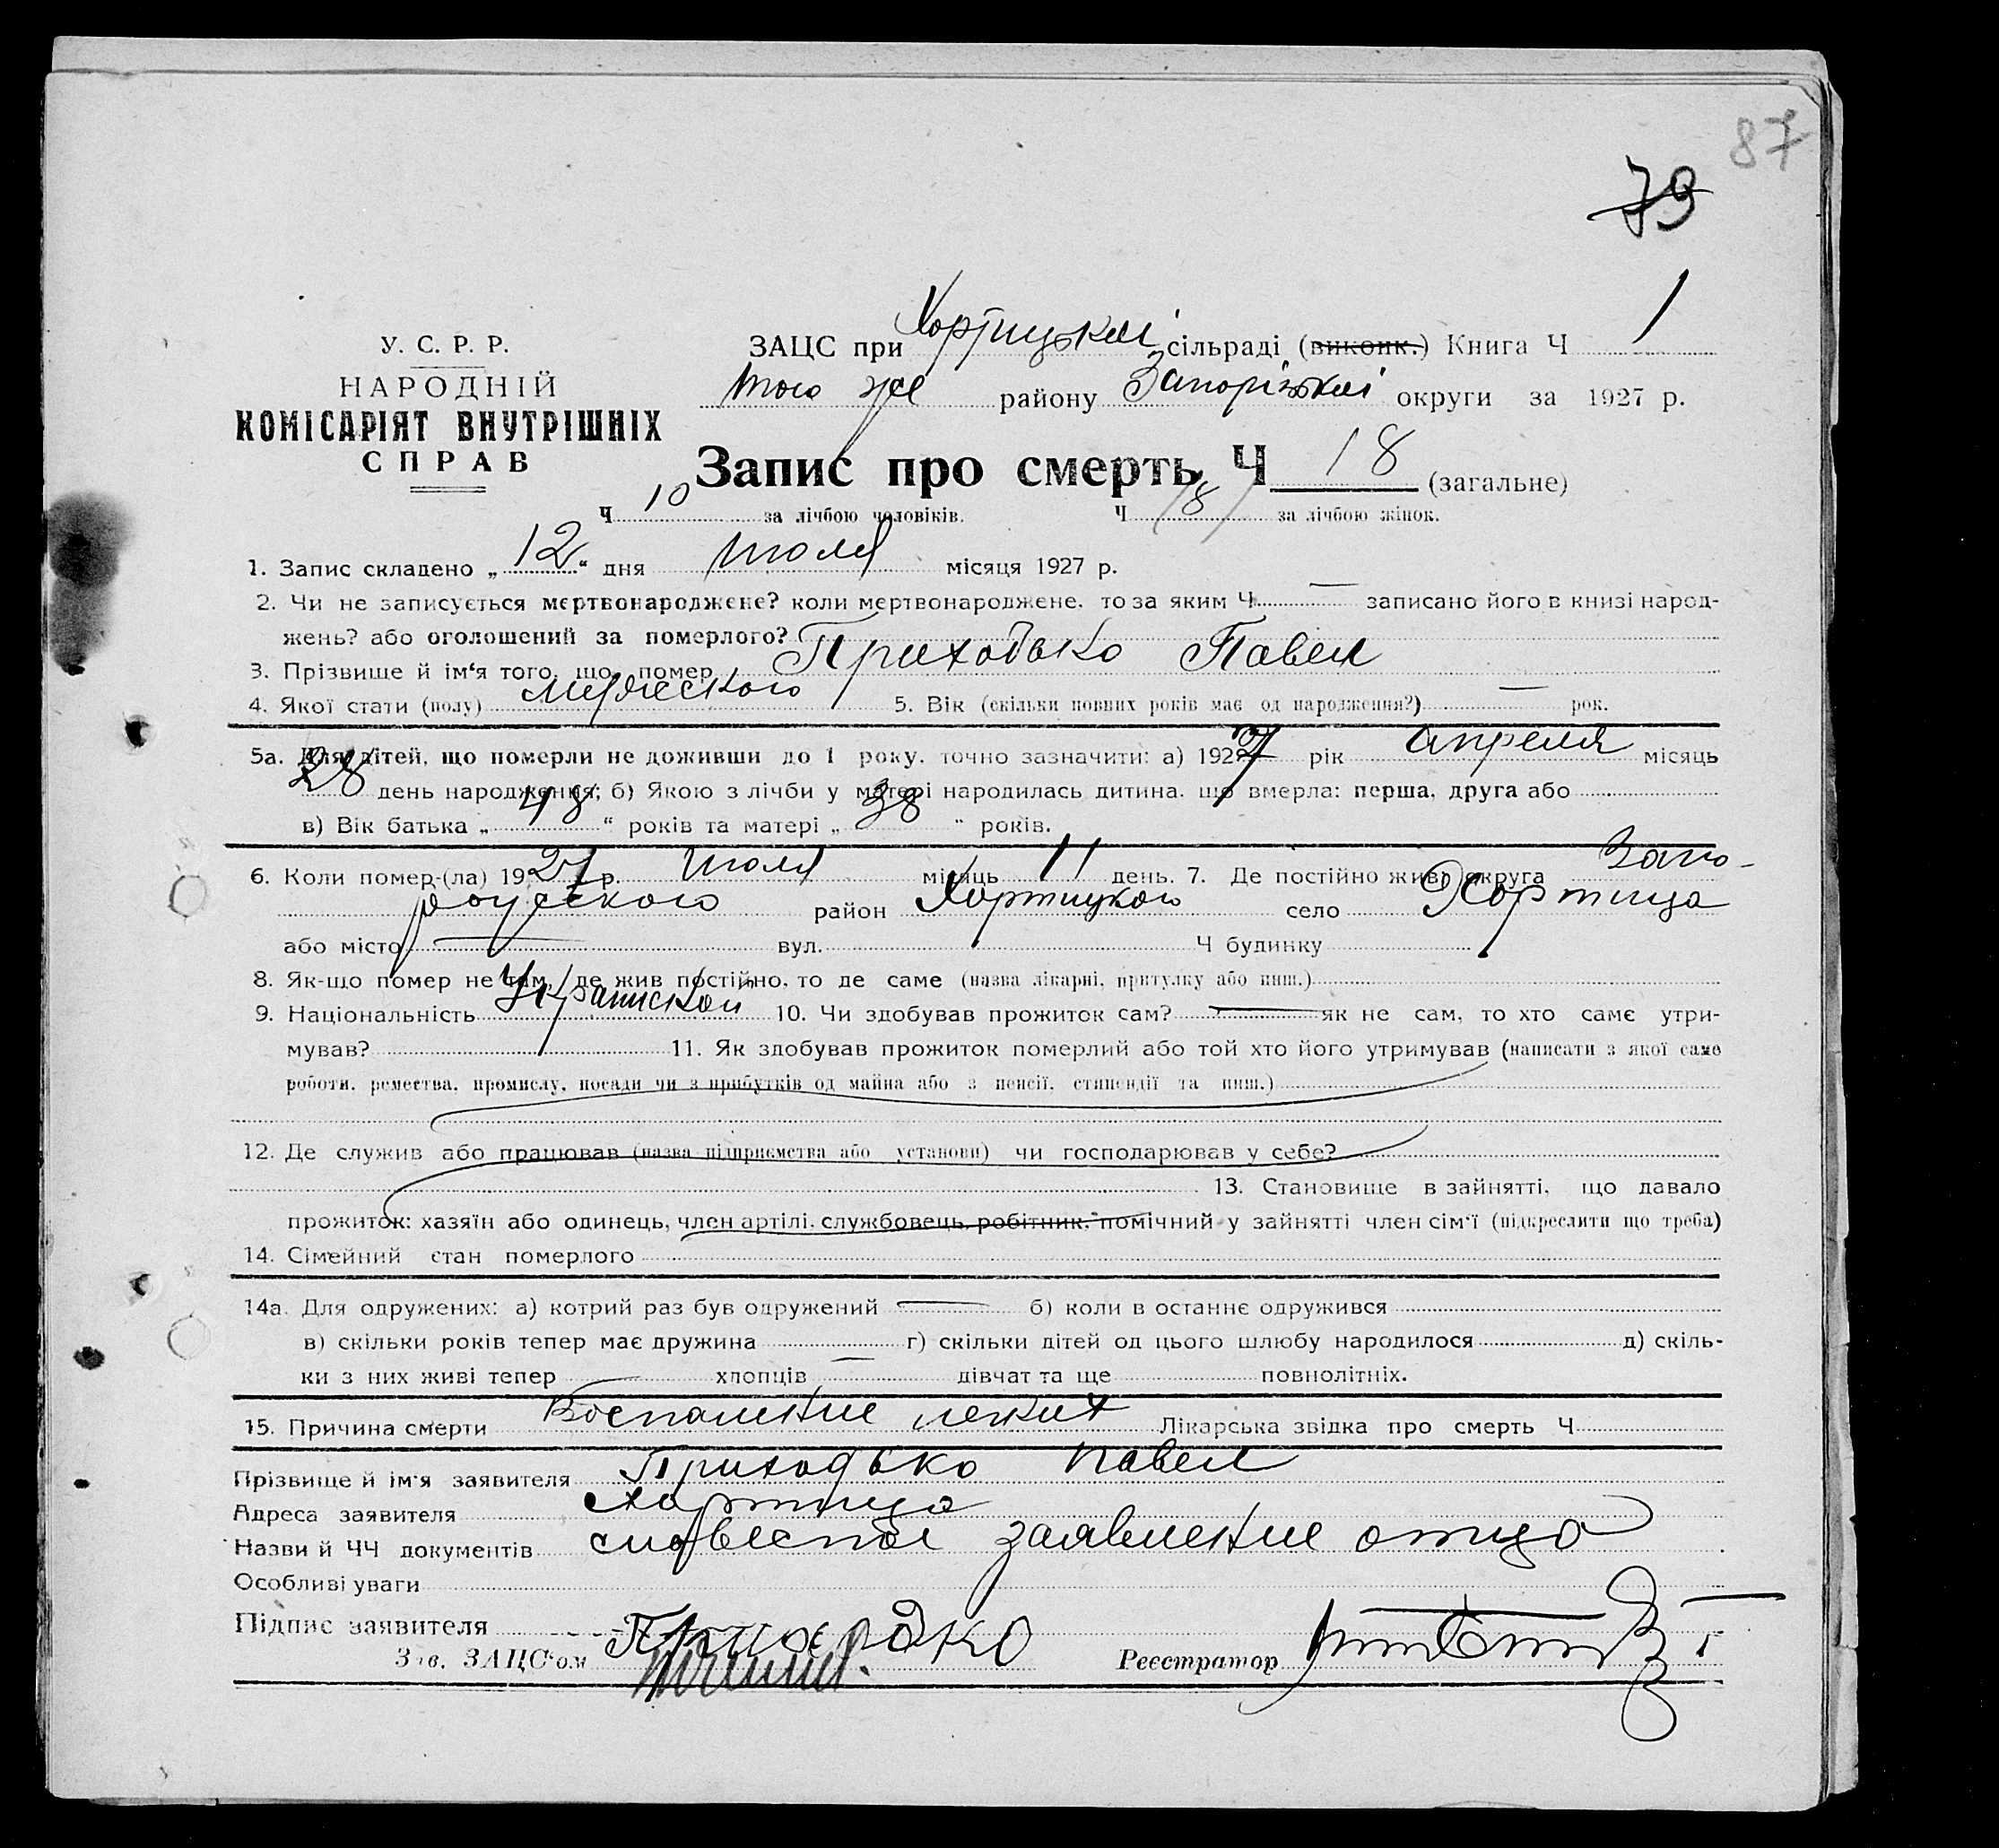 87
79
У. С. Р. Р.
НАРОДНІЙ
КОМІСАРІЯТ ВНУТРІШНІХ
СПРАВ
ЗАЦС при Хортицкой сільраді (виконк.) Книга Ч 1
того же району Запоріжской округи за 1927 р.
Запис про смерть Ч 18 (загальне)
Ч 10 за лічбою чоловіків. Ч 8 за лічбою жінок.
1. Запис складено „ 12 “ дня июля місяця 1927 р.
2. Чи не записується мертвонароджене? коли мертвонароджене, то за яким Ч — записано його в книзі народ-
жень? або оголошений за померлого?
3. Прізвище й ім‘я того, що помер Приходько Павел
4. Якої стати (полу) мужеского 5. Вік (скільки повних років має од народження?) — рок.
5а. Для дітей, що померли не доживши до 1 року, точно зазначити: а) 1927 рік апреля місяць
28 день народження; б) Якою з лічби у матері народилась дитина, що вмерла: перша, друга або
в) Вік батька „ 48 “ років та матері „ 38 “ років.
6. Коли помер-(ла) 1927 р. июля місяць 11 день. 7. Де постійно жив: округа Запо-
рожского район Хортицкого село Хортица
або місто — вул. Ч будинку
8. Як-що помер не там, де жив постійно, то де саме (назва лікарні, притулку або инш.)
9. Національність 10. Чи здобував прожиток сам? — як не сам, то хто саме утри-
мував? 11. Як здобував прожиток померлий або той хто його утримував (написати з якої саме
роботи, ремества, промислу, посади чи з прибутків од майна або з пенсії, стипендії та инш.)
12. Де служив або працював (назва підприємства або установи) чи господарював у себе?
13. Становище в зайнятті, що давало
прожиток: хазяїн або одинець, член артілі, службовець, робітник, помічний у зайнятті член сім‘ї (підкреслити що треба)
14. Сімейний стан померлого
14а. Для одружених: а) котрий раз був одружений — б) коли в останнє одружився
в) скільки років тепер має дружина г) скільки дітей од цього шлюбу народилося д) скіль-
ки з них живі тепер хлопців — дівчат та ще повнолітніх.
15. Причина смерти Воспаление легких Лікарська звідка про смерть Ч
Прізвище й ім‘я заявителя Приходько Павел
Адреса заявителя Хортица
Назви й ЧЧ документів словесное заявление отца
Особливі уваги
Підпис заявителя Приходко
Зав. ЗАЦС‘ом Реєстратор